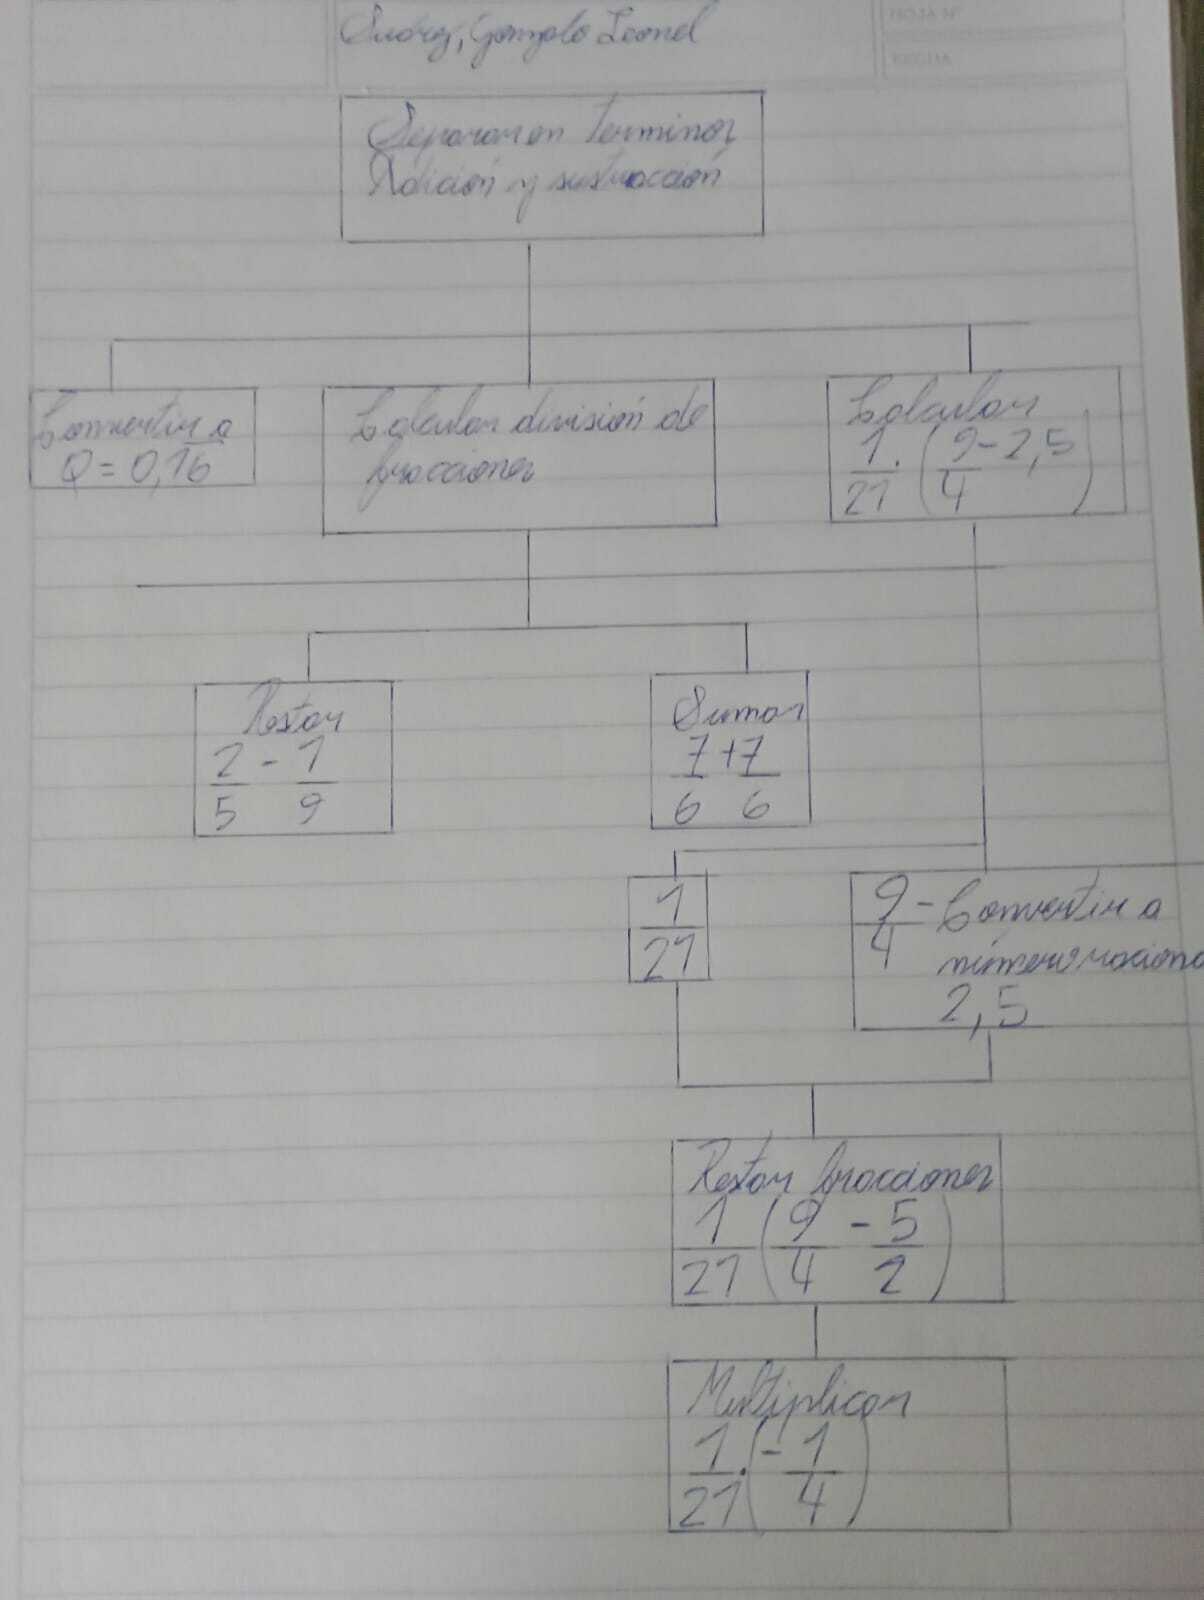 Suarez, Gonzalo Leonel
HOJA N°
FECHA
Separar en terminos
Adición y sustracción
Convertir a
Q = 0,16
Calcular división de
fracciones
Calcular
1/21 · (9/4 - 2,5)
Restar
2/5 - 1/9
Sumar
7/6 + 7/6
1/21
9/4 - Convertir a
número raciona
2,5
Restar fracciones
1/21 (9/4 - 5/2)
Multiplicar
1/21 · (- 1/4)